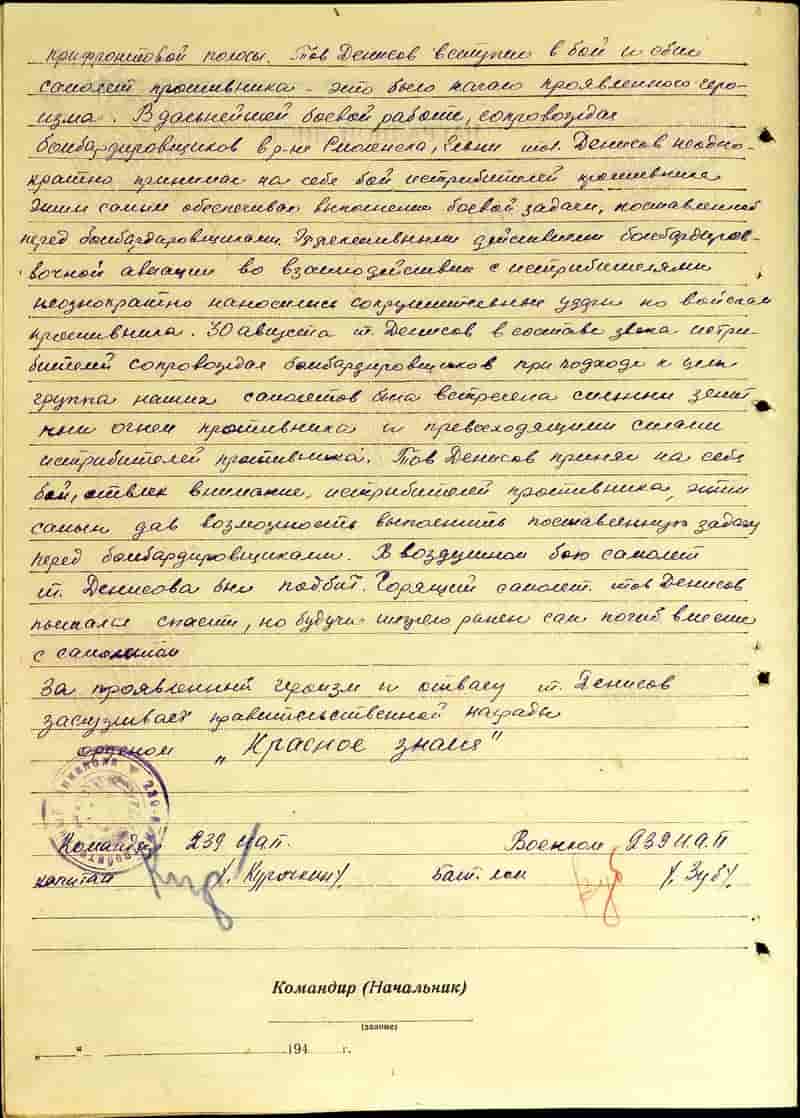 прифронтовой полосы. Тов Денисов вступил в бой и сбил
самолет противника - это было начало проявленного геро-
изма. В дальнейшей боевой работе, сопровождая
бомбардировщиков в р-не Смоленска, Ельни тов. Денисов неодно-
кратно принимал на себя бой истребителей противника
Этим самым обеспечивал выполнение боевой задачи, поставленной
перед бомбардировщиками. Эффективными действиями бомбардиров-
вочной авиации во взаимодействии с истребителями
неоднократно наносились сокрушительные удары по войскам
противника. 30 августа т. Денисов в составе звена истре-
бителей сопровождал бомбардировщиков при подходе к цели
группа наших самолетов была встречена сильным зенит
ным огнем противника и превосходящими силами
истребителей противника. Тов Денисов принял на себя
бой, отвлек внимание истребителей противника, этим
самым дав возможность выполнить поставленную задачу
перед бомбардировщиками. В воздушном бою самолет
т. Денисова был подбит. Горящий самолет тов Денисов
пытался спасти, но будучи тяжело ранен сам погиб вместе
с самолетом
За проявленный героизм и отвагу т. Денисов
заслуживает правительственной награды
орденом „Красное знамя"
Командир 239 иап. Военком 239 И.А.П
капитан /. Курочкин/. Бат. ком /. Зуб/.
Командир (Начальник)
(звание)
„ “ 194 г.